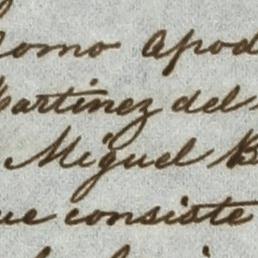 como Apod
Martinez del
Miguel B
que consiste